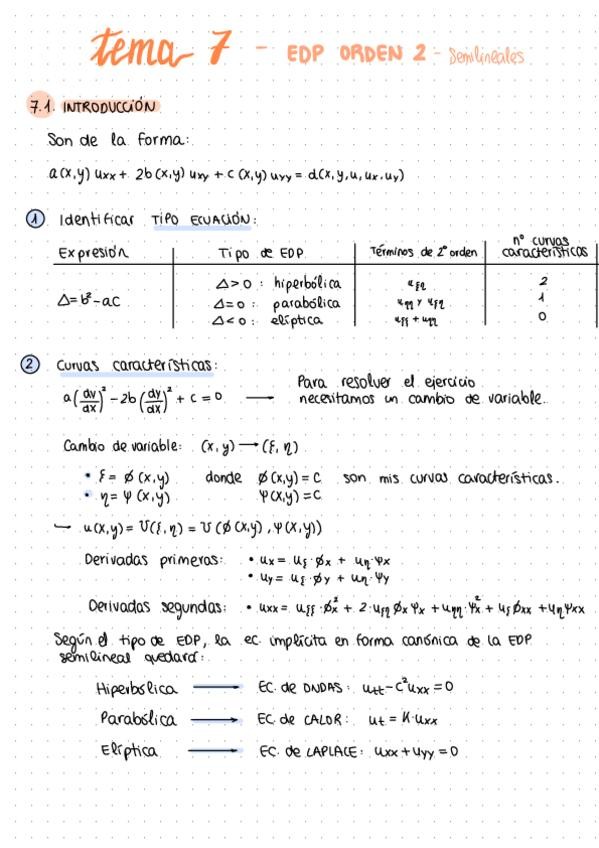 tema 7 - EDP ORDEN 2 - Semilineales
7.1. INTRODUCCIÓN
Son de la forma:
a(x,y) uxx + 2b(x,y) uxy + c(x,y) uyy = d(x,y,u,ux,uy)
① Identificar TIPO ECUACIÓN:
Expresión | Tipo de EDP | Términos de 2º orden | nº curvas características
Δ=b²-ac | Δ>0: hiperbólica | uξη | 2
Δ=0: parabólica | uηη y uξη | 1
Δ<0: elíptica | uξξ + uηη | 0
② Curvas características:
a(dy/dx)² - 2b(dy/dx)² + c = 0 → Para resolver el ejercicio
necesitamos un cambio de variable.
Cambio de variable: (x,y) → (ξ,η)
• ξ = ϕ(x,y) donde ϕ(x,y)=C son mis curvas características.
• η = ψ(x,y) ψ(x,y)=C
→ u(x,y) = U(ξ,η) = U(ϕ(x,y), ψ(x,y))
Derivadas primeras: • ux = uξ·ϕx + uη·ψx
• uy = uξ·ϕy + uη·ψy
Derivadas segundas: • uxx = uξξ·ϕx² + 2·uξη ϕx ψx + uηη·ψx² + uξ ϕxx + uη ψxx
Según el tipo de EDP, la ec. implícita en forma canónica de la EDP
semilineal quedará:
Hiperbólica → EC. de ONDAS: utt - c²uxx = 0
Parabólica → EC. de CALOR: ut = K·uxx
Elíptica → EC. de LAPLACE: uxx + uyy = 0